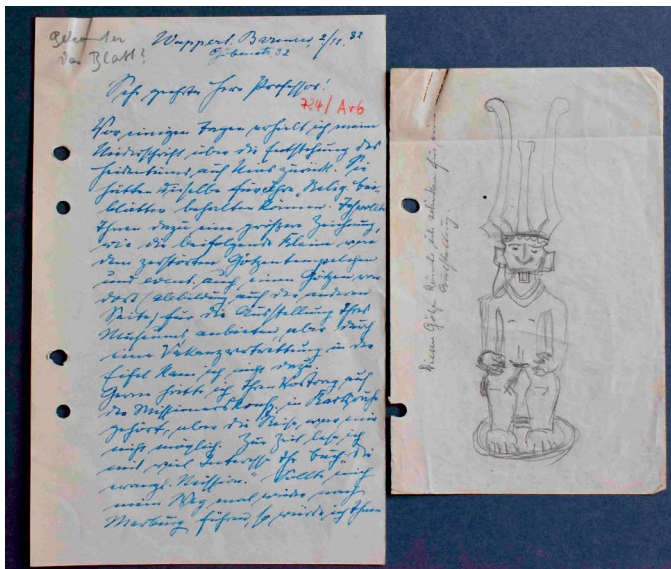 Wuppert. Barmen, 2/11. 32
Sehr geehrter Herr Professor!
724/Ar6
Vor einigen Tagen erhielt ich meine
Niederschrift über die Entstehung des
Heidentums auf Nias zurück. Sie
hätten dieselbe für Ihre Relig. bei-
blätter behalten können. Ich wollte
Ihnen dazu eine größere Zeichnung,
wie die beifolgende kleine von
dem zerstörten Götzentempelchen
und event. auch einen Götzen von
dort (Abbildung auf der anderen
Seite) für die Ausstellung Ihres
Museums anbieten, aber durch
eine Vakanzvertretung in der
Eifel kam ich nicht dazu.
Gern hätte ich Ihren Vortrag auf
der Missionskonf. in
gehört, aber die Reise war mir
nicht möglich. Zur Zeit lese ich
mit viel Interesse Ihr Buch „Die
evangl. Mission." Sollte mich
mein Weg mal wieder nach
Marburg führen, so würde ich Ihnen
Diesen Götze könnte ich schicken für eine
Ausstellung.